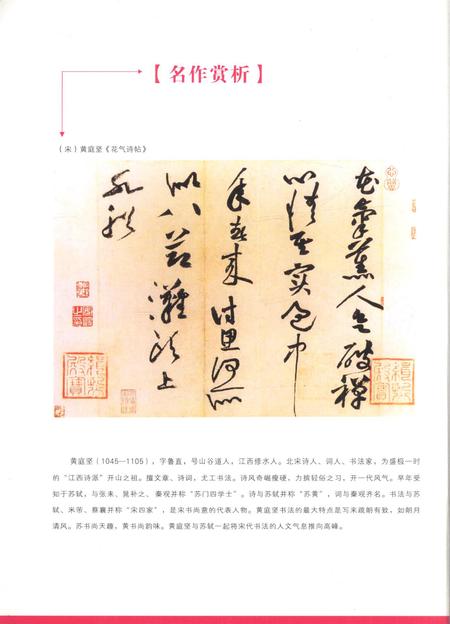 【名作赏析】
（宋）黄庭坚《花气诗帖》
花氣薰人欲破禪
心情其实過中
年春來詩思何所
似八節灘頭上
水船
黄庭坚（1045—1105），字鲁直，号山谷道人，江西修水人。北宋诗人、词人、书法家，为盛极一时
的“江西诗派”开山之祖。擅文章、诗词，尤工书法。诗风奇崛瘦硬，力摈轻俗之习，开一代风气。早年受
知于苏轼，与张耒、晁补之、秦观并称“苏门四学士”。诗与苏轼并称“苏黄”，词与秦观齐名。书法与苏
轼、米芾、蔡襄并称“宋四家”，是宋书尚意的代表人物。黄庭坚书法的最大特点是写来疏朗有致，如朗月
清风。苏书尚天趣，黄书尚韵味。黄庭坚与苏轼一起将宋代书法的人文气息推向高峰。